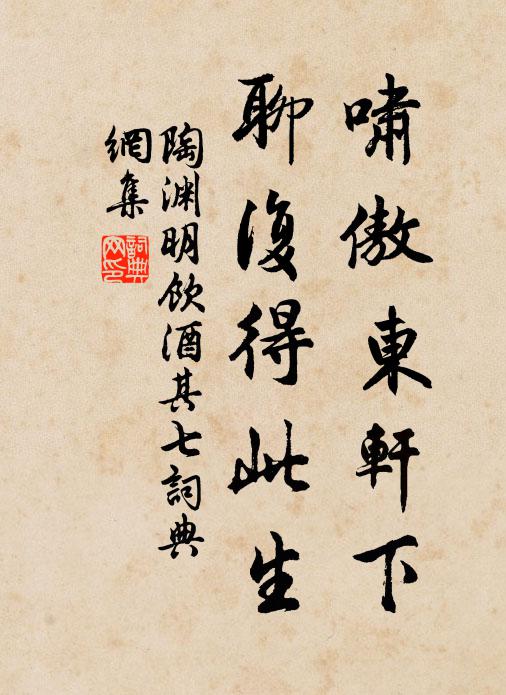 嘯傲東軒下
聊復得此生
陶渊明飲酒其七詞典
網集
詞典网印